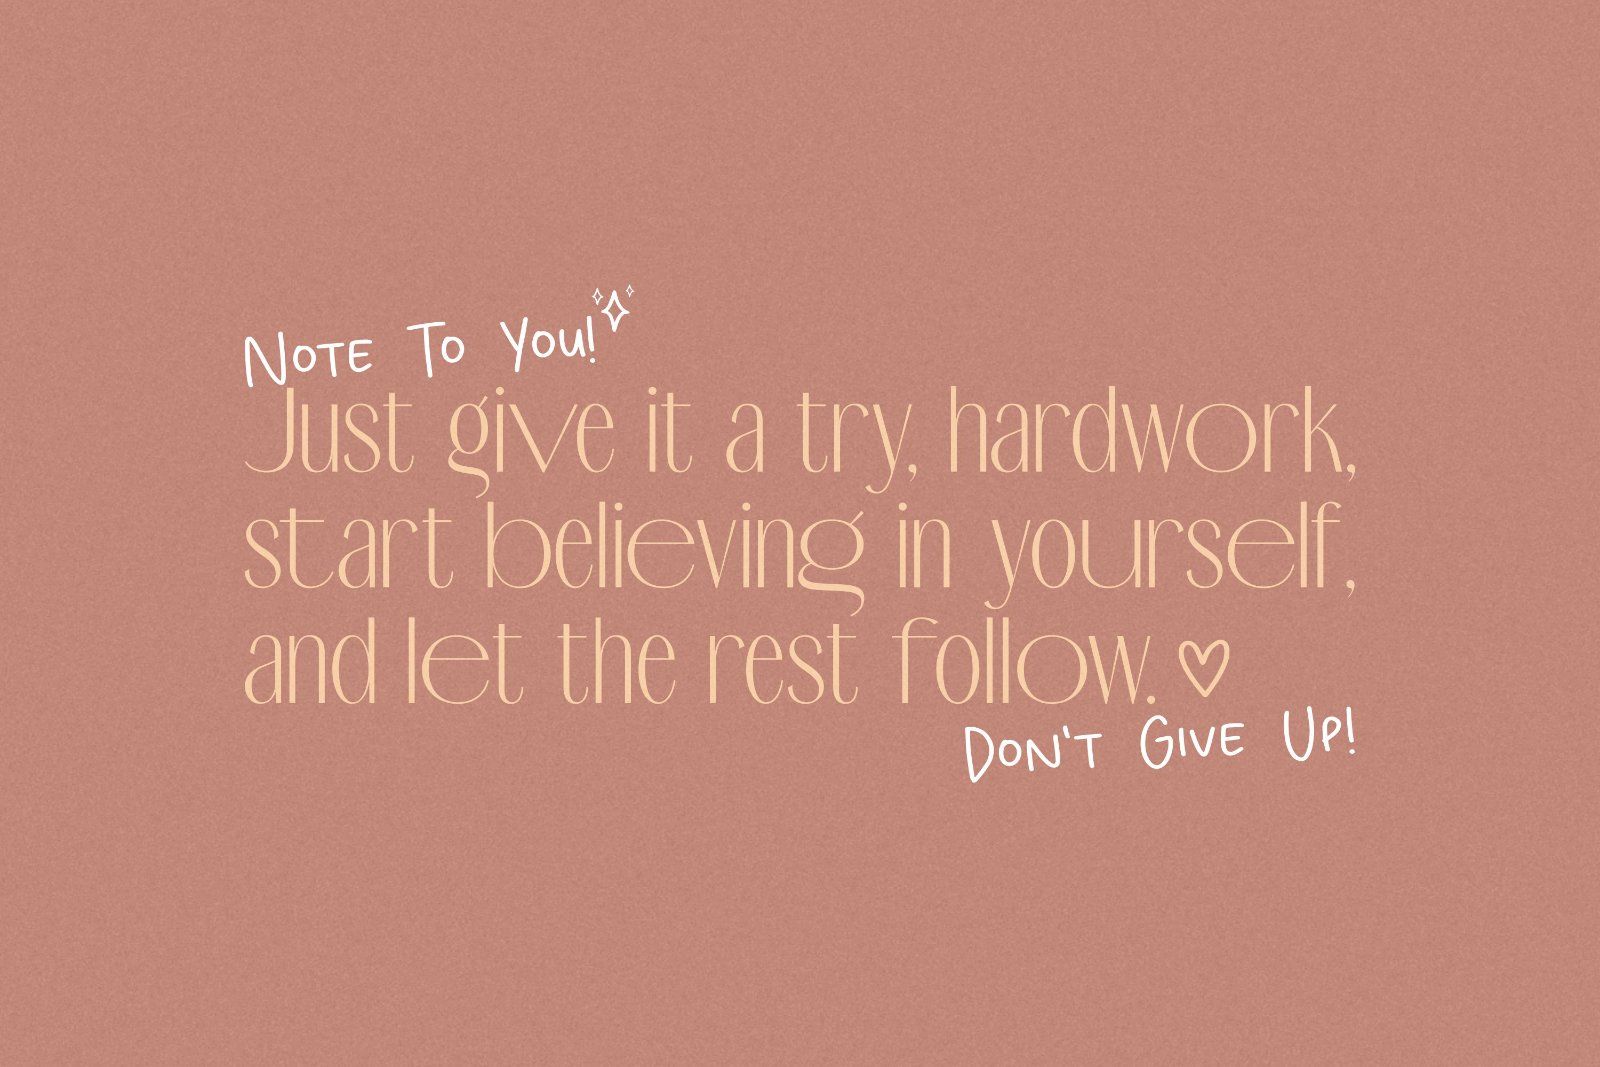 Note To You!
Just give it a try, hardwork,
start believing in yourself,
and let the rest follow.
Don't Give Up!